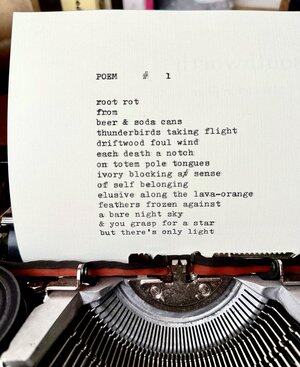 POEM # 1
root rot
from
beer & soda cans
thunderbirds taking flight
driftwood foul wind
each death a notch
on totem pole tongues
ivory blocking a sense
of self belonging
elusive along the lava-orange
feathers frozen against
a bare night sky
& you grasp for a star
but there's only light